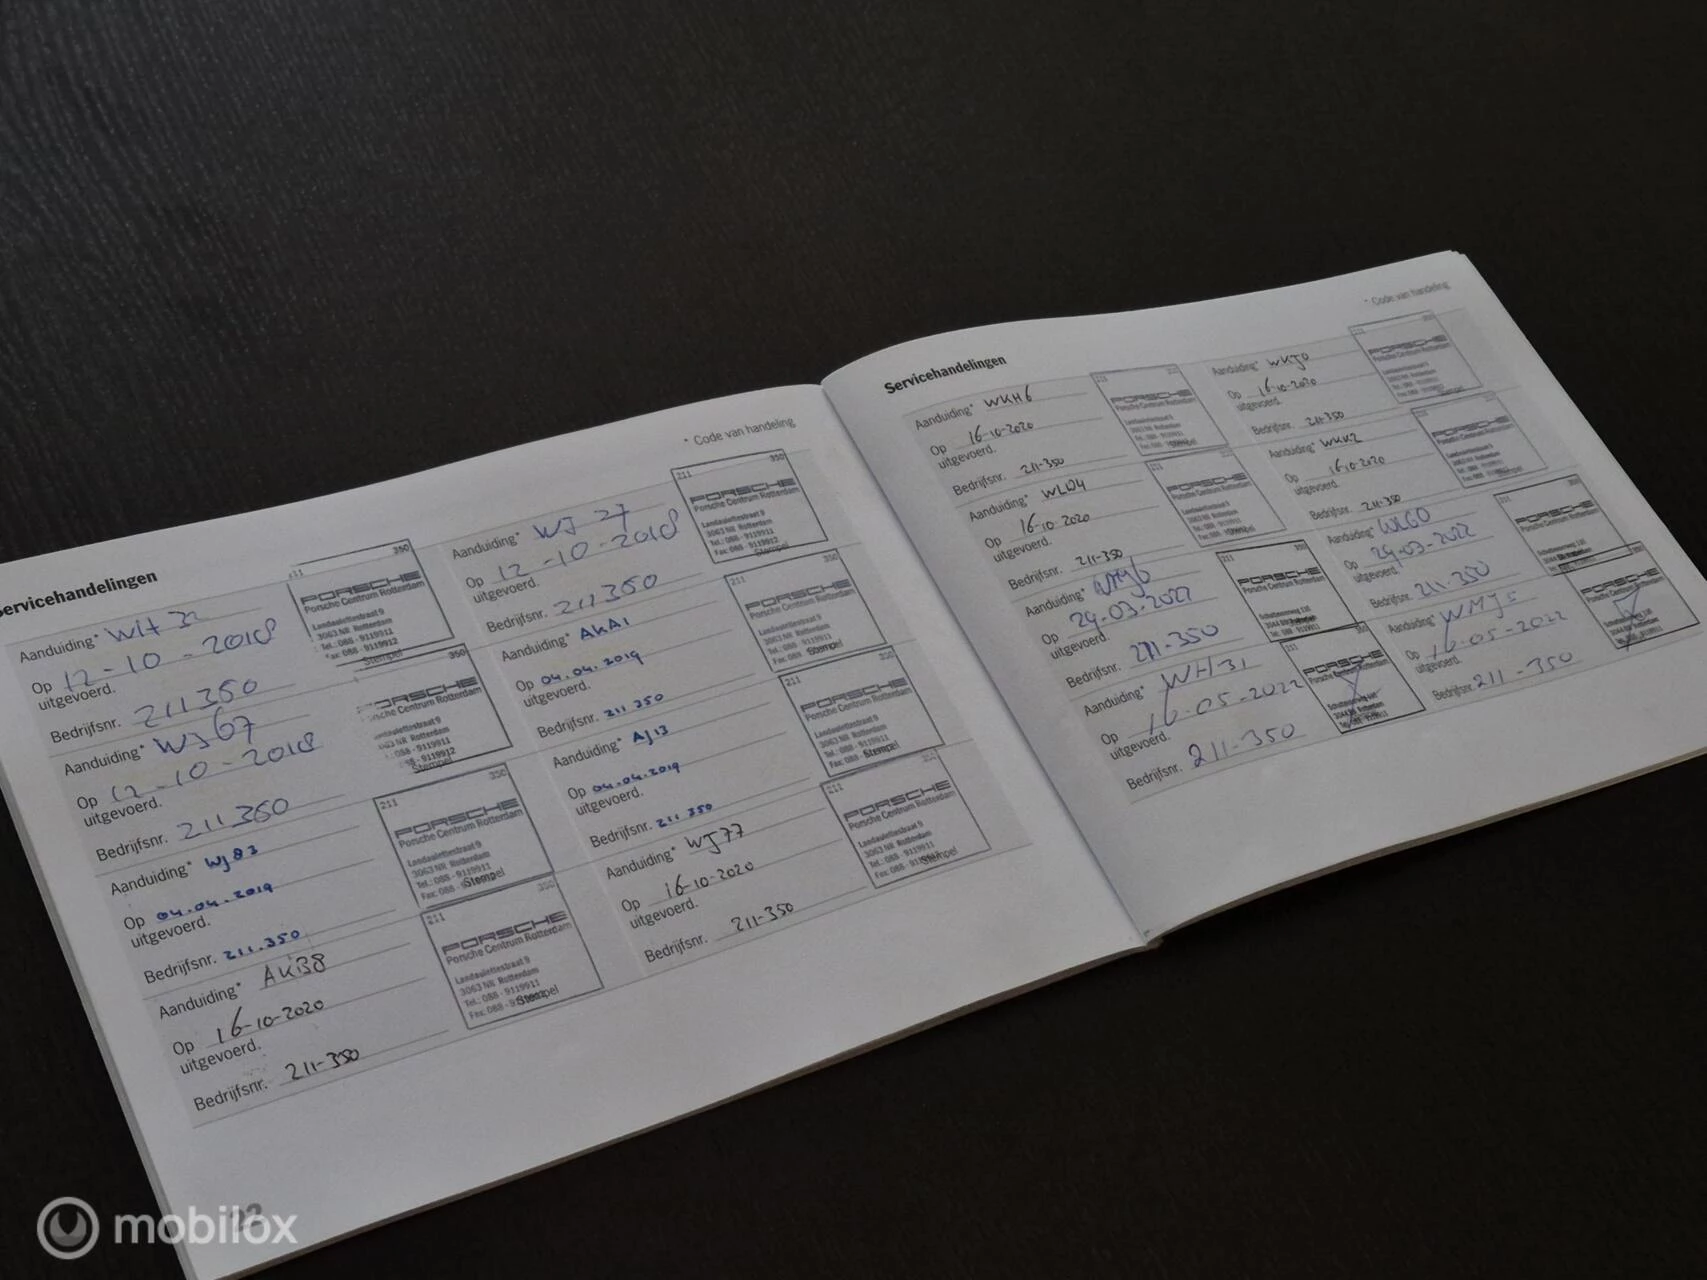 Servicehandelingen
* Code van handeling
Aanduiding* WH 32
Op 12-10-2018
uitgevoerd.
Bedrijfsnr. 211350
350
PORSCHE
Porsche Centrum Rotterdam
Landaulettestraat 9
3063 NR Rotterdam
Tel.: 088 - 9119911
Fax: 088 - 9119912
Stempel
Aanduiding* WJ67
Op 12-10-2018
uitgevoerd.
Bedrijfsnr. 211350
350
PORSCHE
Porsche Centrum Rotterdam
Stempel
Aanduiding* WJ83
Op 04.04.2019
uitgevoerd.
Bedrijfsnr. 211.350
211 350
PORSCHE
Porsche Centrum Rotterdam
Landaulettestraat 9
3063 NR Rotterdam
Tel.: 088 - 9119911
Stempel
Aanduiding* AKB8
Op 16-10-2020
uitgevoerd.
Bedrijfsnr. 211-350
211 350
PORSCHE
Porsche Centrum Rotterdam
Landaulettestraat 9
3063 NR Rotterdam
Tel.: 088 - 9119911
Stempel
Aanduiding* WJ 27
Op 12-10-2018
uitgevoerd.
Bedrijfsnr. 211350
211 350
PORSCHE
Porsche Centrum Rotterdam
Landaulettestraat 9
3063 NR Rotterdam
Tel.: 088 - 9119911
Fax: 088 - 9119912
Stempel
Aanduiding* AKA1
Op 04.04.2019
uitgevoerd.
Bedrijfsnr. 211 350
211 350
PORSCHE
Porsche Centrum Rotterdam
Landaulettestraat 9
3063 NR Rotterdam
Tel.: 088 - 9119911
Stempel
Aanduiding* AJ13
Op 04.04.2019
uitgevoerd.
Bedrijfsnr. 211 350
211 350
PORSCHE
Porsche Centrum Rotterdam
Landaulettestraat 9
3063 NR Rotterdam
Tel.: 088 - 9119911
Stempel
Aanduiding* WJ77
Op 16-10-2020
uitgevoerd.
Bedrijfsnr. 211-350
211 350
PORSCHE
Porsche Centrum Rotterdam
Landaulettestraat 9
3063 NR Rotterdam
Tel.: 088 - 9119911
Stempel
Servicehandelingen
* Code van handeling
Aanduiding* WKH6
Op 16-10-2020
uitgevoerd.
Bedrijfsnr. 211-350
PORSCHE
Porsche Centrum Rotterdam
Aanduiding* WLD4
Op 16-10-2020
uitgevoerd.
Bedrijfsnr. 211-350
PORSCHE
Porsche Centrum Rotterdam
Aanduiding*
Op 29-03-2022
uitgevoerd.
Bedrijfsnr. 211-350
211 350
PORSCHE
Porsche Centrum Rotterdam
Aanduiding* WH31
Op 16-05-2022
uitgevoerd.
Bedrijfsnr. 211-350
211 350
PORSCHE
Aanduiding* WKJ0
Op 16-10-2020
uitgevoerd.
Bedrijfsnr. 211-350
350
PORSCHE
Porsche Centrum Rotterdam
Aanduiding* WKK2
Op 16-10-2020
uitgevoerd.
Bedrijfsnr. 211-350
PORSCHE
Porsche Centrum Rotterdam
Aanduiding*
Op 29-03-2022
uitgevoerd.
Bedrijfsnr. 211-350
211 350
PORSCHE
Porsche Centrum Rotterdam
Aanduiding*
Op 16-05-2022
uitgevoerd.
Bedrijfsnr. 211-350
PORSCHE
22
mobilox